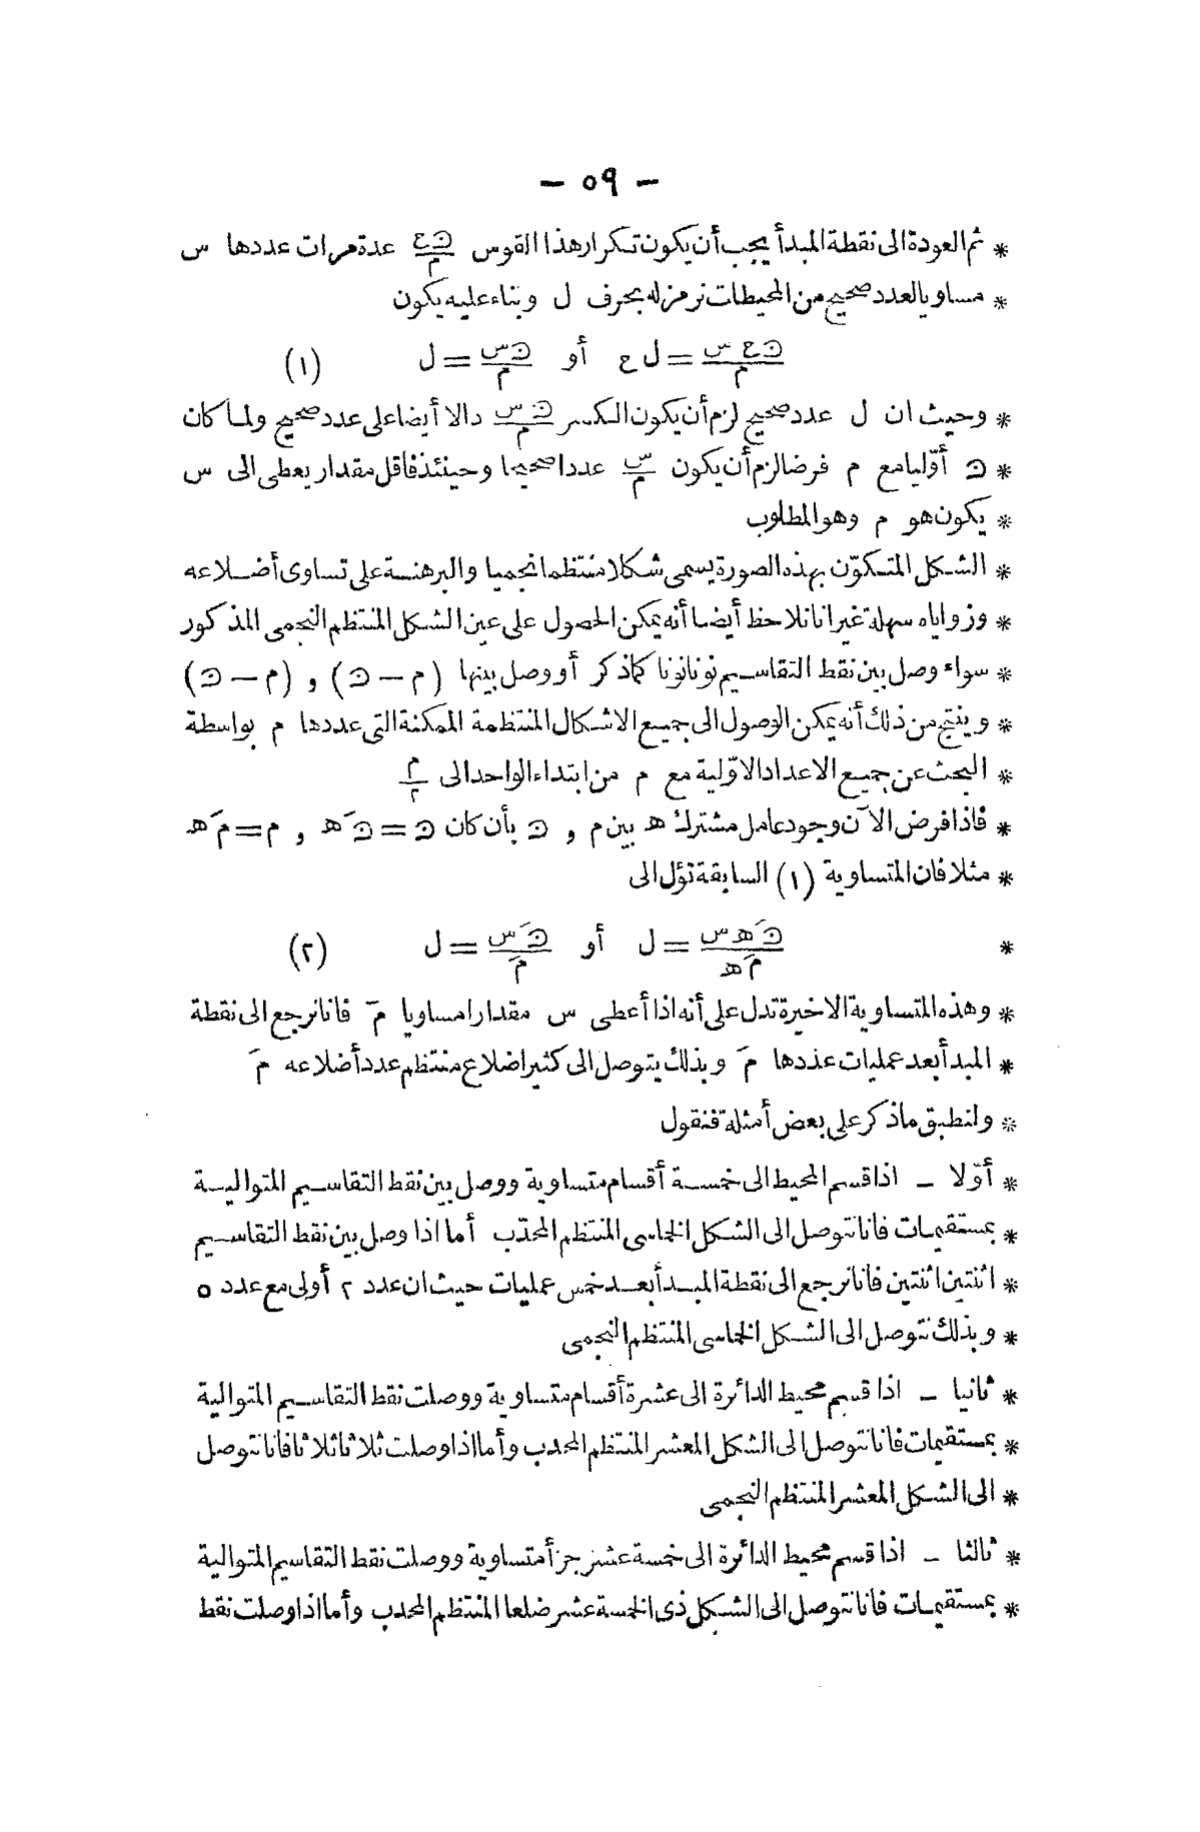 — ٥٩ —
* ثم العودة الى نقطة المبدأ يجب أن يكون تكرار هذا القوس ن ع / م عدة مرات عددها س
* مساويا لعدد صحيح من المحيطات نرمز له بحرف ل وبناء عليه يكون
ن ع س / م = ل ع أو ن س / م = ل (١)
* وحيث ان ل عدد صحيح لزم أن يكون الكسر ن س / م دالا أيضا على عدد صحيح ولما كان
* ن أوّليا مع م فرضا لزم أن يكون س / م عددا صحيحا وحينئذ فاقل مقدار يعطى الى س
* يكون هو م وهو المطلوب
* الشكل المتكوّن بهذه الصورة يسمى شكلا منتظما نجميا والبرهنة على تساوى أضلاعه
* وزواياه سهلة غير اننا نلاحظ أيضا أنه يمكن الحصول على عين الشكل المنتظم النجمى المذكور
* سواء وصل بين نقط التقاسيم نونا نونا كما ذكر أو وصل بينها (م — ن) و (م — ن)
* وينتج من ذلك أنه يمكن الوصول الى جميع الاشكال المنتظمة الممكنة التى عددها م بواسطة
* البحث عن جميع الاعداد الاوّلية مع م من ابتداء الواحد الى م / ٢
* فاذا فرض الآن وجود عامل مشترك ه بين م و ن بأن كان ن = نَ ه و م = مَ ه
* مثلا فان المتساوية (١) السابقة تؤل الى
* نَ ه س / مَ ه = ل أو نَ س / مَ = ل (٢)
* وهذه المتساوية الاخيرة تدل على أنه اذا أعطى س مقدارا مساويا مَ فاننا نرجع الى نقطة
* المبدأ بعد عمليات عددها مَ وبذلك يتوصل الى كثير اضلاع منتظم عدد أضلاعه مَ
* ولنطبق ما ذكر على بعض أمثلة فنقول
* أوّلا — اذا قسم المحيط الى خمسة أقسام متساوية ووصل بين نقط التقاسيم المتوالية
* بمستقيمات فاننا نتوصل الى الشكل الخماسى المنتظم المحدّب أما اذا وصل بين نقط التقاسيم
* اثنتين اثنتين فاننا نرجع الى نقطة المبدأ بعد خمس عمليات حيث ان عدد ٢ أولى مع عدد ٥
* وبذلك نتوصل الى الشكل الخماسى المنتظم النجمى
* ثانيا — اذا قسم محيط الدائرة الى عشرة أقسام متساوية ووصلت نقط التقاسيم المتوالية
* بمستقيمات فاننا نتوصل الى الشكل المعشر المنتظم المحدب وأما اذا وصلت ثلاثا ثلاثا فاننا نتوصل
* الى الشكل المعشر المنتظم النجمى
* ثالثا — اذا قسم محيط الدائرة الى خمسة عشر جزأ متساوية ووصلت نقط التقاسيم المتوالية
* بمستقيمات فاننا نتوصل الى الشكل ذى الخمسة عشر ضلعا المنتظم المحدب وأما اذا وصلت نقط